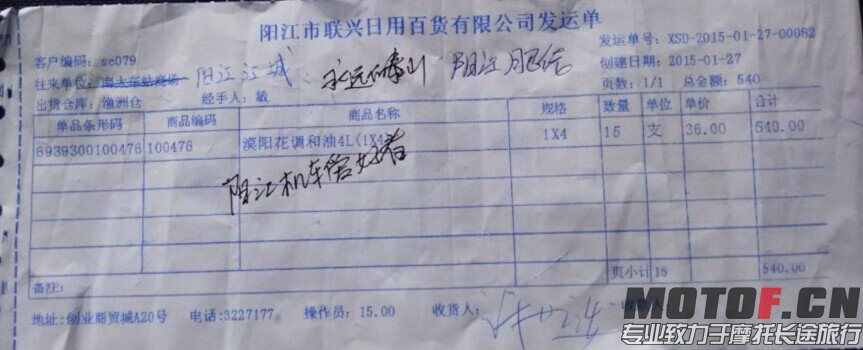 阳江市联兴日用百货有限公司发运单
客户编码: sc079 发运单号: XSD-2015-01-27-00082
创建日期: 2015-01-27
往来单位: 南大车站商场 阳江江城、永远的泰山 阳江
页数: 1/1 总金额: 540
出货仓库: 渔洲仓 经手人: 敏
单品条形码 商品编码 商品名称 规格 数量 单位 单价 合计
6939300100476 100476 漠阳花调和油4L(1X4 1X4 15 支 36.00 540.00
阳江机车管好着
页小计 15 540.00
备注:
地址: 创业商贸城A20号 电话: 3227177 操作员: 15.00 收货人:
MOTOF.CN
专业致力于摩托长途旅行